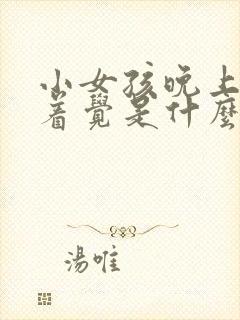 小女孩晚上
着覺是什麼
湯唯